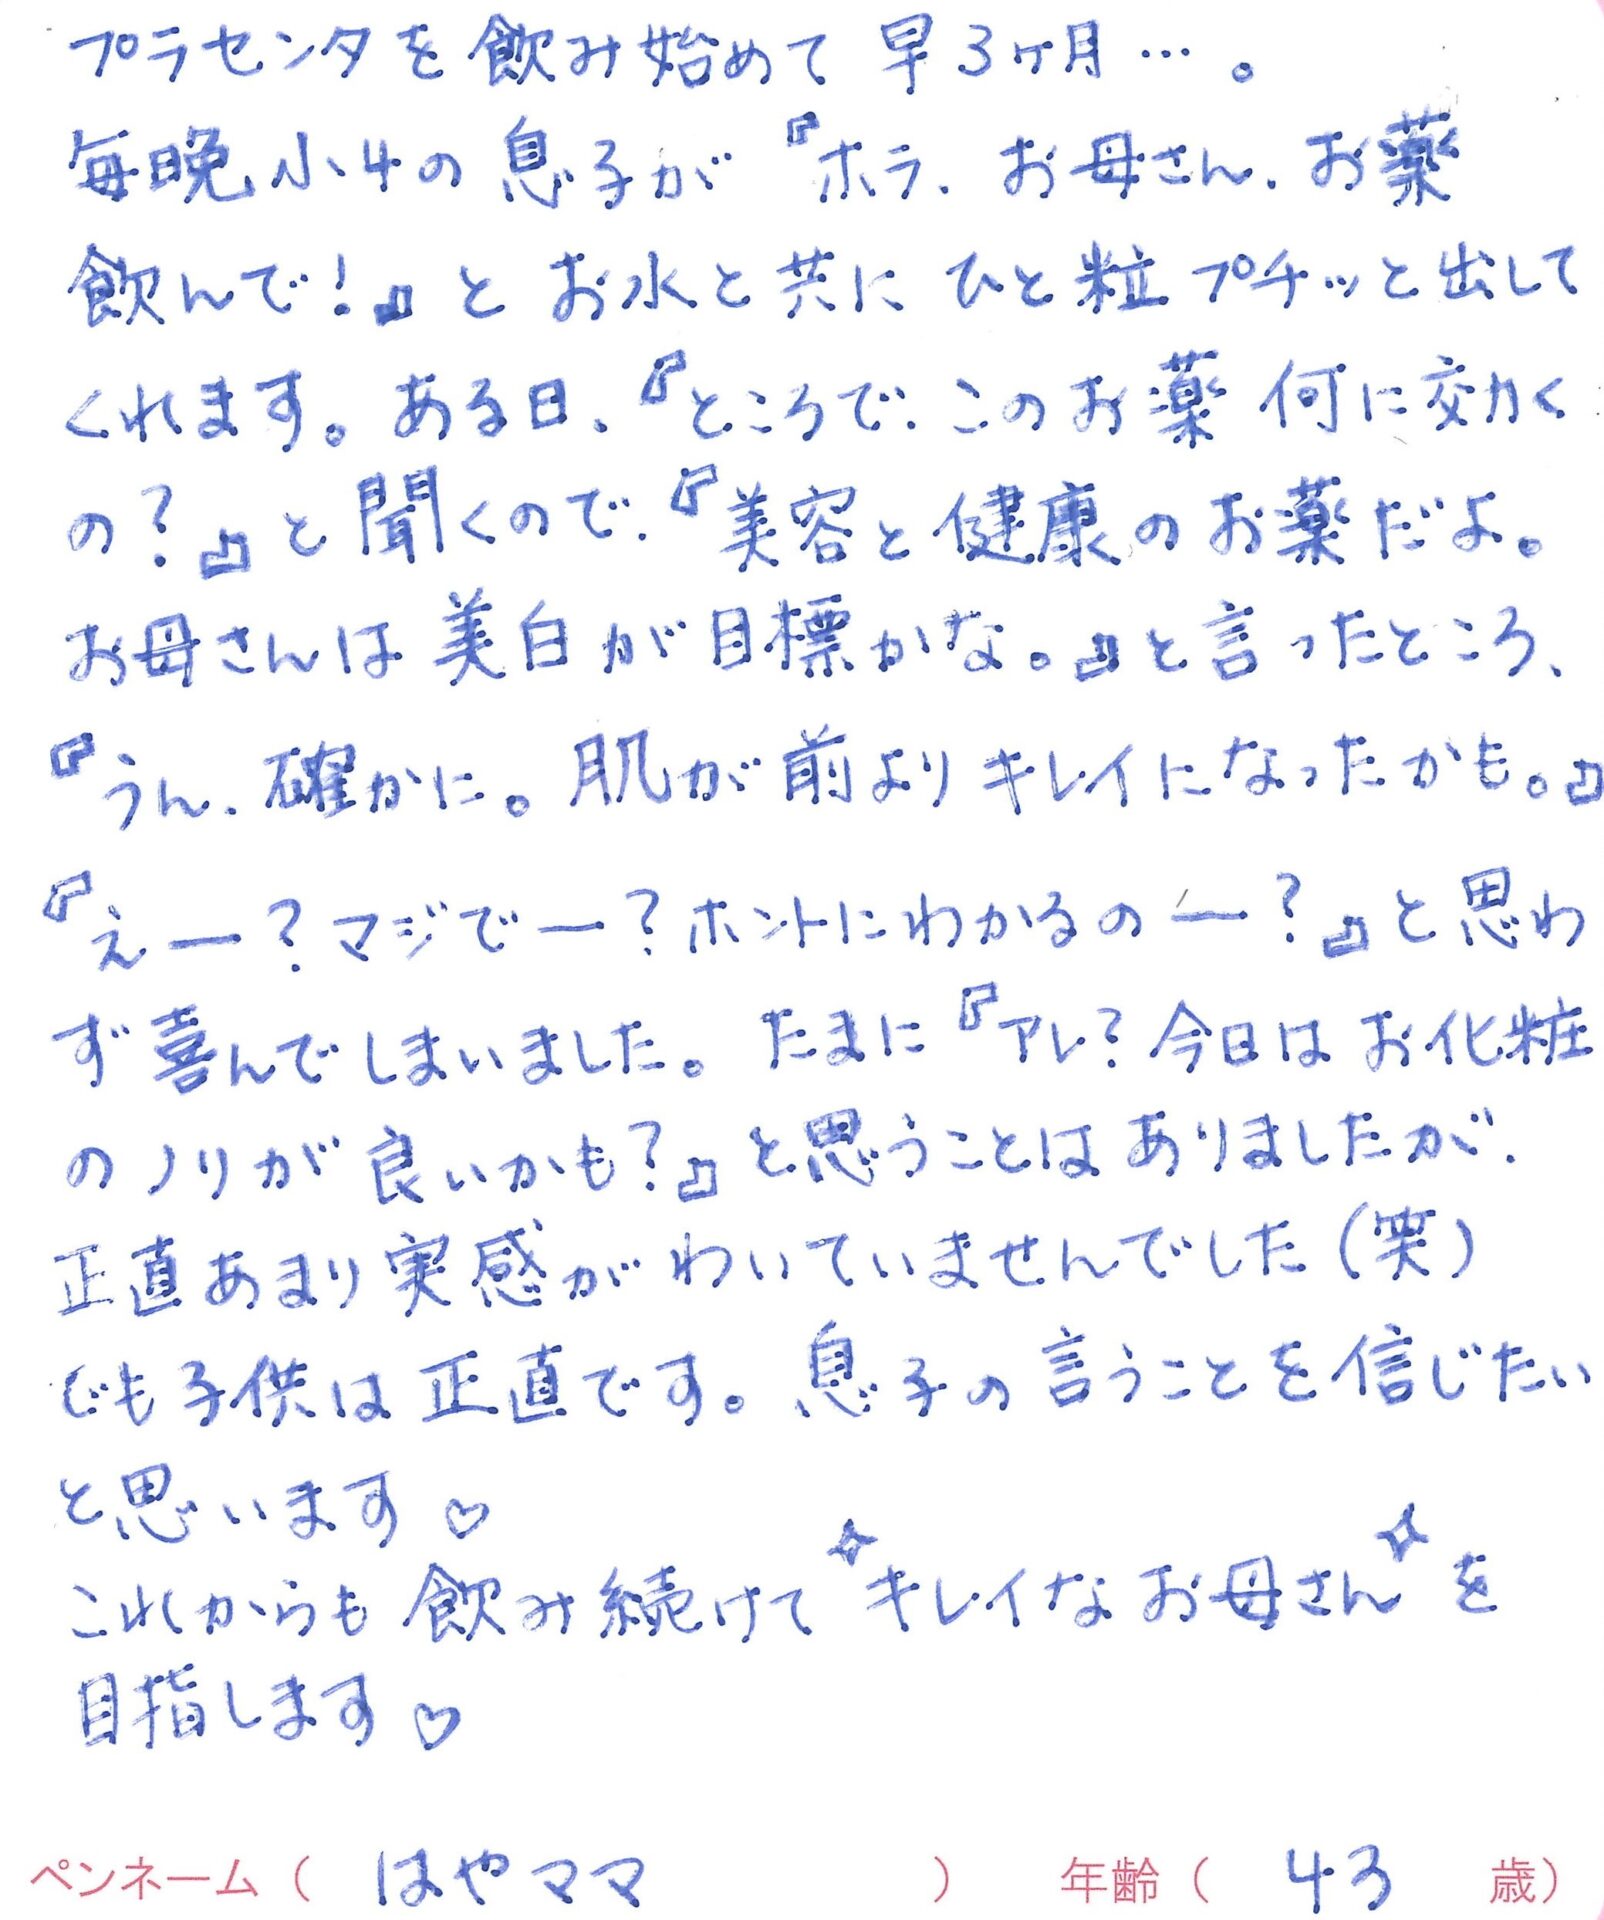 プラセンタを飲み始めて早3ヶ月…。
毎晩小4の息子が『ホラ、お母さん、お薬
飲んで！』とお水と共にひと粒プチッと出して
くれます。ある日、『ところで、このお薬何に効く
の？』と聞くので、『美容と健康のお薬だよ。
お母さんは美白が目標かな。』と言ったところ、
『うん、確かに。肌が前よりキレイになったかも。』
『えー？マジでー？ホントにわかるのー？』と思わ
ず喜んでしまいました。たまに『アレ？今日はお化粧
のノリが良いかも？』と思うことはありましたが、
正直あまり実感がわいていませんでした（笑）
でも子供は正直です。息子の言うことを信じたい
と思います♡
これからも飲み続けて✧キレイなお母さん✧を
目指します♡
ペンネーム（ はやママ ） 年齢（ 43 歳）